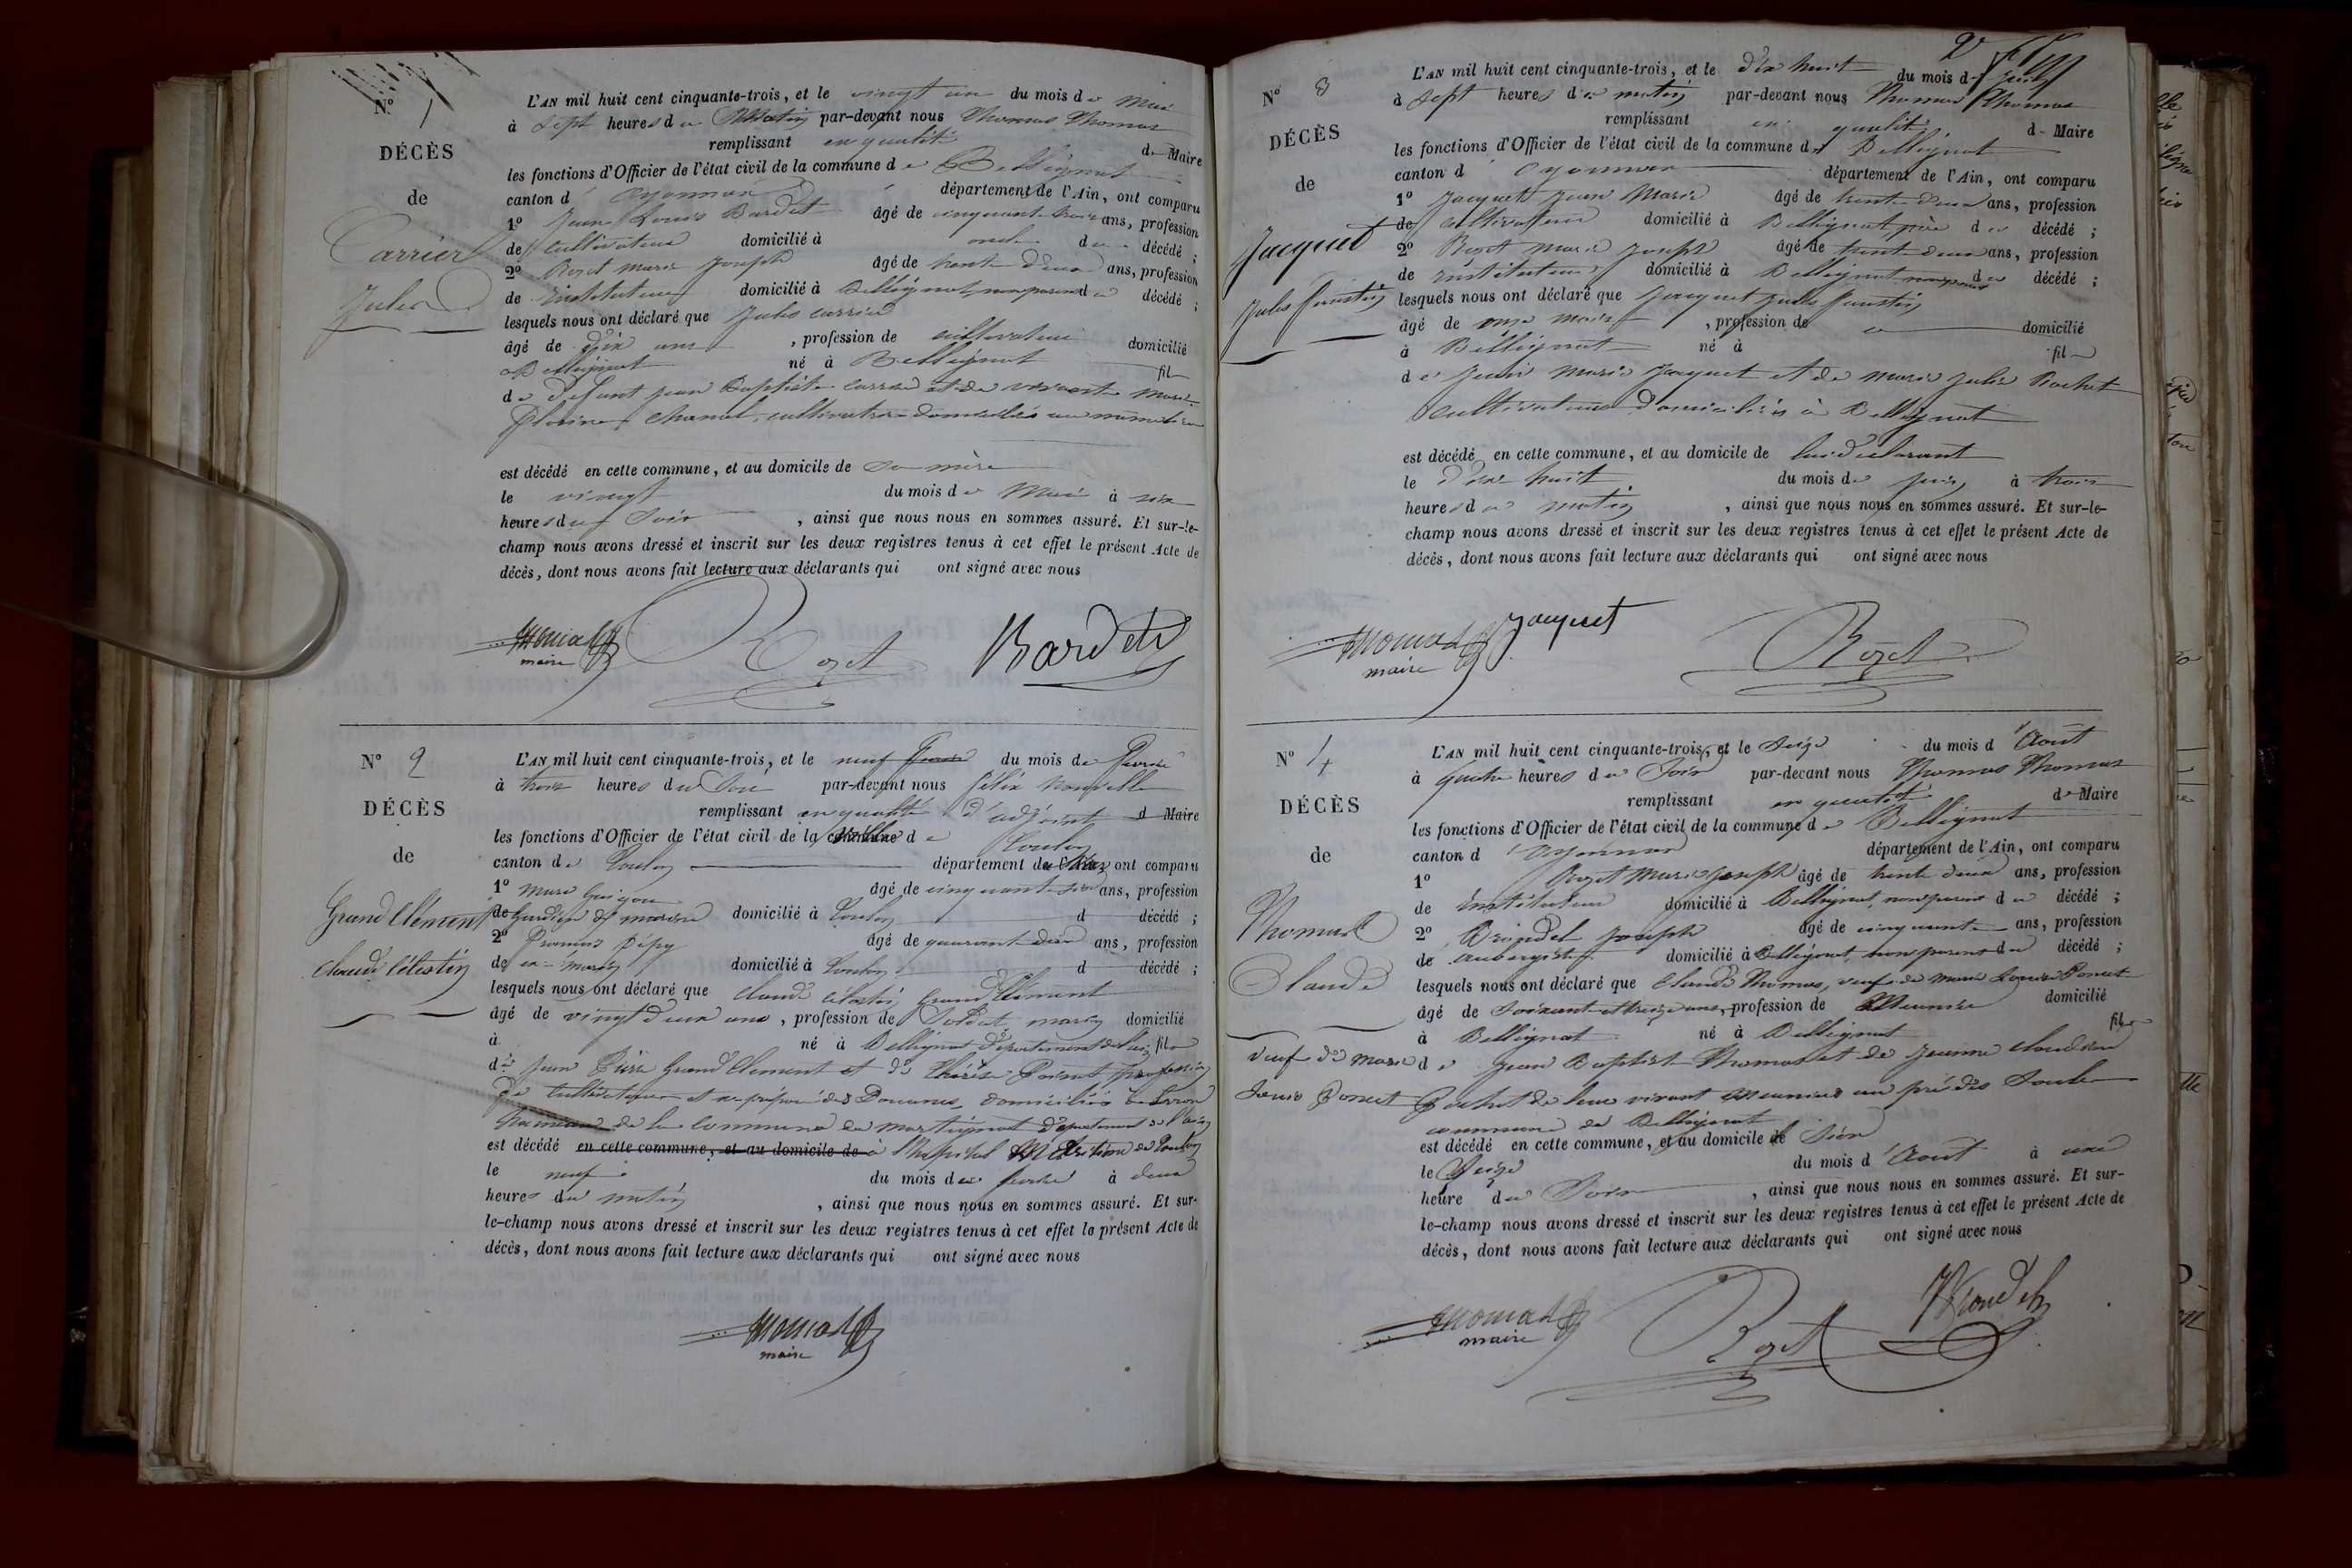 N° 1
DÉCÈS
de
Carrier
Jules
L'AN mil huit cent cinquante-trois, et le vingt un du mois de Mai
à Sept heures du Matin par-devant nous Thomas Thomas
remplissant en qualité de Maire
les fonctions d'Officier de l'état civil de la commune de Bellignat
canton d'Oyonnax département de l'Ain, ont comparu
1° Jean Louis Bardet âgé de cinquante trois ans, profession
de cultivateur domicilié à oncle du décédé ;
2° Rozet Marie Joseph âgé de trente deux ans, profession
de Instituteur domicilié à Bellignat, non parent du décédé ;
lesquels nous ont déclaré que Jules Carrier
âgé de dix ans, profession de cultivateur domicilié
à Bellignat né à Bellignat fils
de défunt Jean Baptiste Carrier et de vivante Marie
Chanal, cultivatrice
est décédé en cette commune, et au domicile de Sa mère
le vingt du mois de Mai à six
heures du Soir, ainsi que nous nous en sommes assuré. Et sur-le-
champ nous avons dressé et inscrit sur les deux registres tenus à cet effet le présent Acte de
décès, dont nous avons fait lecture aux déclarants qui ont signé avec nous
Thomas Rozet Bardet
maire
N° 2
DÉCÈS
de
Grand Clément
Claude Célestin
L'AN mil huit cent cinquante-trois, et le neuf du mois de Février
à trois heures du Soir par-devant nous Félix
remplissant en qualité d'adjoint d Maire
les fonctions d'Officier de l'état civil de la de Toulon
canton de Toulon département du Var ont comparu
1° âgé de cinquante ans, profession
de Gardien de domicilié à Toulon d décédé ;
2° âgé de quarante ans, profession
de domicilié à Toulon d décédé ;
lesquels nous ont déclaré que Claude Célestin Grand Clément
âgé de vingt deux ans, profession de Soldat domicilié
à né à Bellignat département de l'Ain fils
de Jean Pierre Grand Clément et de Thérèse Poncet profession
de Cultivateur et préposé des Douanes, domiciliés à
hameau de la Commune de Martignat département de l'Ain
est décédé en cette commune, et au domicile de à l'hôpital de Toulon
le neuf du mois de février à deux
heures du matin, ainsi que nous nous en sommes assuré. Et sur-
le-champ nous avons dressé et inscrit sur les deux registres tenus à cet effet le présent Acte de
décès, dont nous avons fait lecture aux déclarants qui ont signé avec nous
Thomas
maire
2
N° 3
DÉCÈS
de
Jacquet
Jules Faustin
L'AN mil huit cent cinquante-trois, et le dix huit du mois de Juin
à Sept heures du matin par-devant nous Thomas Thomas
remplissant en qualité de Maire
les fonctions d'Officier de l'état civil de la commune de Bellignat
canton d'Oyonnax département de l'Ain, ont comparu
1° Jacquet Jean Marie âgé de trente deux ans, profession
de cultivateur domicilié à Bellignat, père du décédé ;
2° Rozet Marie Joseph âgé de trente deux ans, profession
de Instituteur domicilié à Bellignat non parent du décédé ;
lesquels nous ont déclaré que Jacquet Jules Faustin
âgé de onze mois, profession de domicilié
à Bellignat né à fils
de Jean Marie Jacquet et de Marie Julie Rochet
cultivateurs domiciliés à Bellignat
est décédé en cette commune, et au domicile de lui déclarant
le dix huit du mois de juin à trois
heures du matin, ainsi que nous nous en sommes assuré. Et sur-le-
champ nous avons dressé et inscrit sur les deux registres tenus à cet effet le présent Acte de
décès, dont nous avons fait lecture aux déclarants qui ont signé avec nous
Thomas Jacquet Rozet
maire
N° 4
DÉCÈS
de
Thomas
Claude
veuf de Marie
Louise Poncet
L'AN mil huit cent cinquante-trois, et le Seize du mois d'Août
à quatre heures du Soir par-devant nous Thomas Thomas
remplissant en qualité de Maire
les fonctions d'Officier de l'état civil de la commune de Bellignat
canton d'Oyonnax département de l'Ain, ont comparu
1° Rozet Marie Joseph âgé de trente deux ans, profession
de Instituteur domicilié à Bellignat, non parent du décédé ;
2° Joseph âgé de cinquante ans, profession
de aubergiste domicilié à Bellignat, non parent du décédé ;
lesquels nous ont déclaré que Claude Thomas, veuf de Marie Louise Poncet
âgé de soixante et treize ans, profession de Meunier domicilié
à Bellignat né à Bellignat fils
de Jean Baptiste Thomas et de Jeanne Claudine
Rochet de leur vivant Meuniers
commune de Bellignat
est décédé en cette commune, et au domicile de Sien
le Seize du mois d'Août à une
heure du Soir, ainsi que nous nous en sommes assuré. Et sur-
le-champ nous avons dressé et inscrit sur les deux registres tenus à cet effet le présent Acte de
décès, dont nous avons fait lecture aux déclarants qui ont signé avec nous
Thomas Rozet
maire